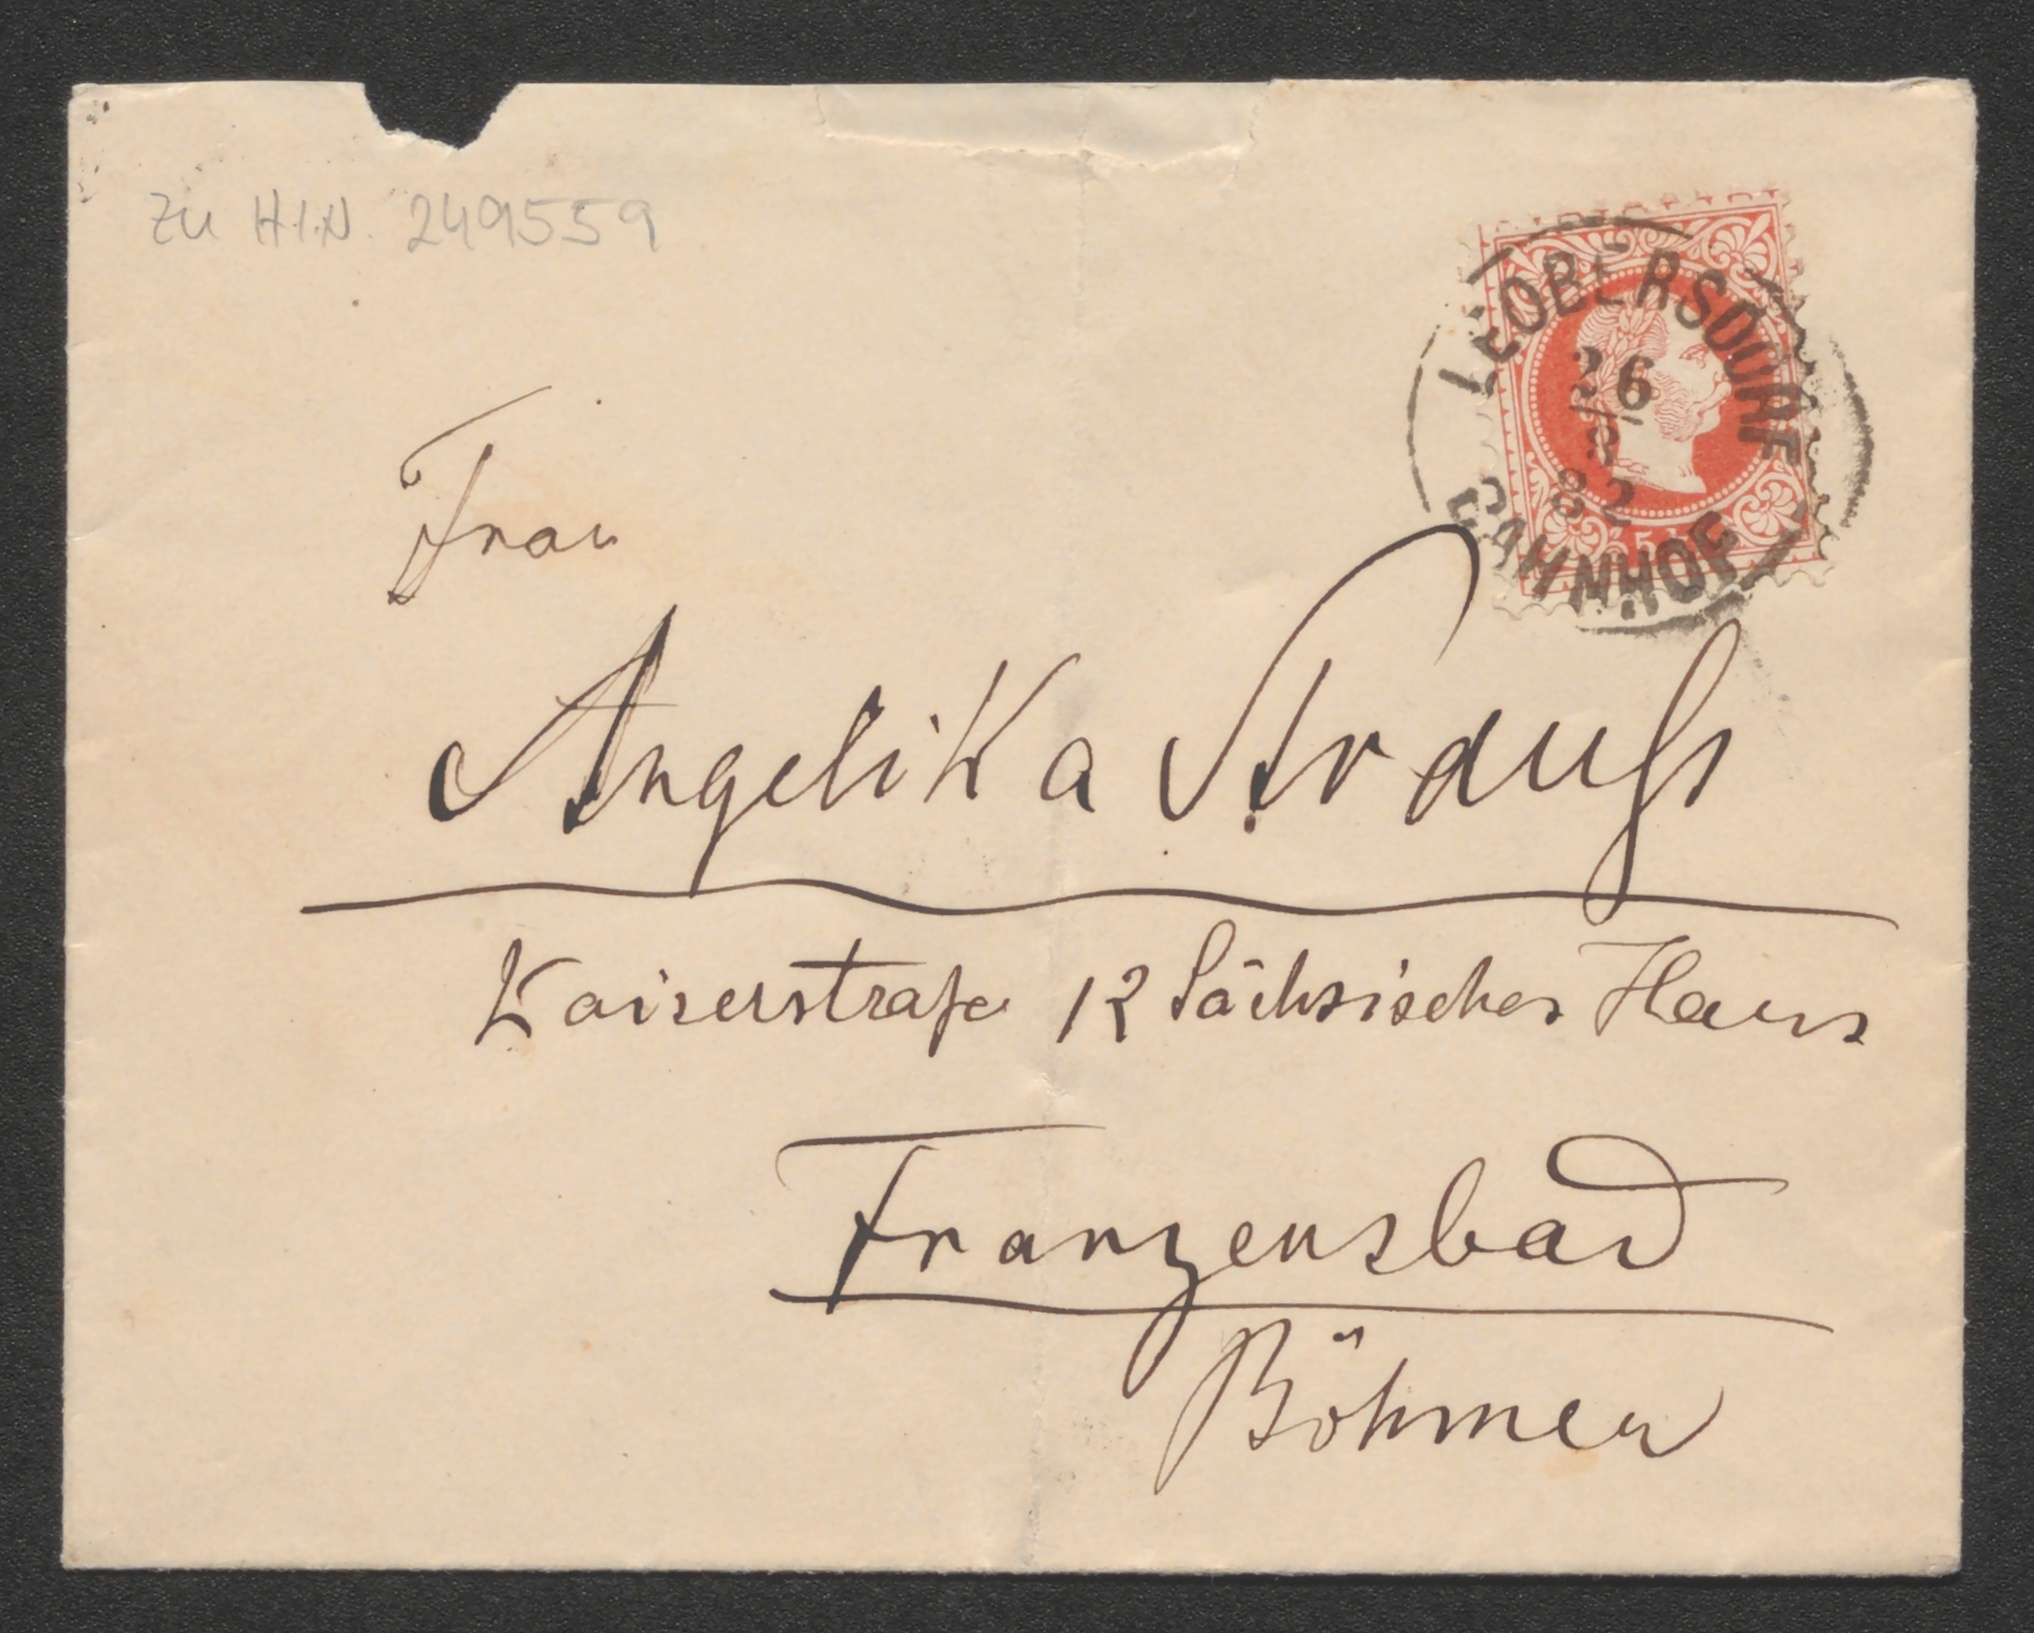 Zu H.I.N. 249559
LEOBERSDORF
26
8
82
BAHNHOF
5
Frau
Angelika Strauß
Kaiserstraße 12 Sächsisches Haus
Franzensbad
Böhmen